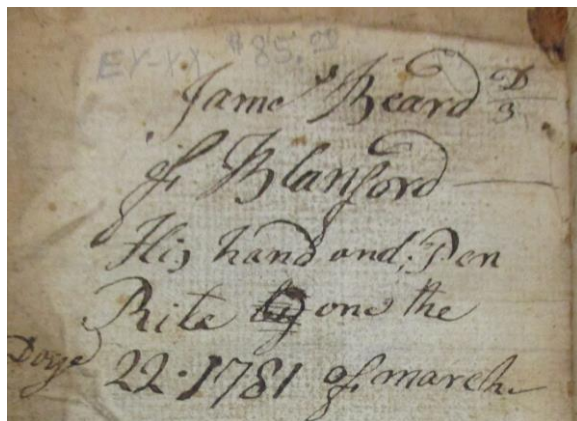 EX-XX $85.00
James Beard D
3
of Blanford
His hand and Pen
Rite by one the
Daye 22·1781 of march